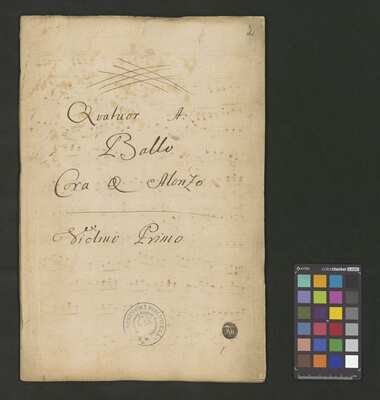 2
Quatuor A:
Ballo
Cora & Alonzo
Violino Primo